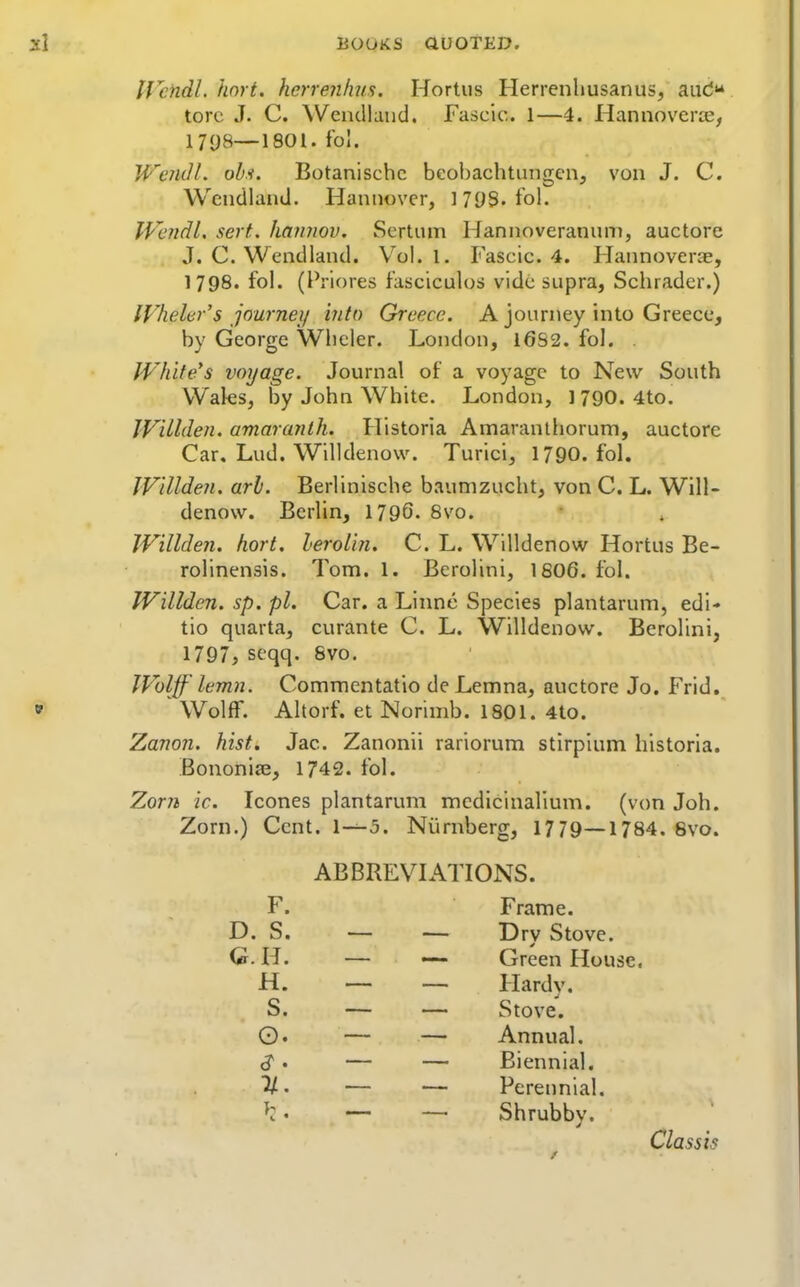 xl BOOKS QUOTED.
Wendl. hort. herrenhus. Hortus Herrenhusanus, auc
tore J. C. Wendland. Fascic. 1—4. Hannoveræ,
1798—1801. fol.
Wendl. obs. Botanische beobachtungen, von J. C.
Wendland. Hannover, 1798. fol.
Wendl. sert. hannov. Sertum Hannoveranum, auctore
J. C. Wendland. Vol. 1. Fascic. 4. Hannoveræ,
1798. fol. (Priores fasciculos vide supra, Schrader.)
Wheler's journey into Greece. A journey into Greece,
by George Wheler. London, 1682. fol.
White's voyage. Journal of a voyage to New South
Wales, by John White. London, 1790. 4to.
Willden. amaranth. Historia Amaranthorum, auctore
Car. Lud. Willdenow. Turici, 1790. fol.
Willden. arb. Berlinische baumzucht, von C. L. Will-
denow. Berlin, 1796. 8vo.
Willden. hort. berolin. C. L. Willdenow Hortus Be-
rolinensis. Tom. 1. Berolini, 1806. fol.
Willden. sp. pl. Car. a Linné Species plantarum, edi-
tio quarta, curante C. L. Willdenow. Berolini,
1797, seqq. 8vo.
Wolff lemn. Commentatio de Lemna, auctore Jo. Frid.
Wolff. Altorf. et Norimb. 1801. 4to.
Zanon. hist. Jac. Zanonii rariorum stirpium historia.
Bononiæ, 1742. fol.
Zorn ic. Icones plantarum medicinalium. (von Joh.
Zorn.) Cent. 1—5. Nürnberg, 1779—1784. 8vo.
ABBREVIATIONS.
F. Frame.
D. S. — — Dry Stove.
G. H. — — Green House.
H. — — Hardy.
S. — — Stove.
☉. — — Annual.
♂. — — Biennial.
♃. — — Perennial.
♄. — — Shrubby.
Classis